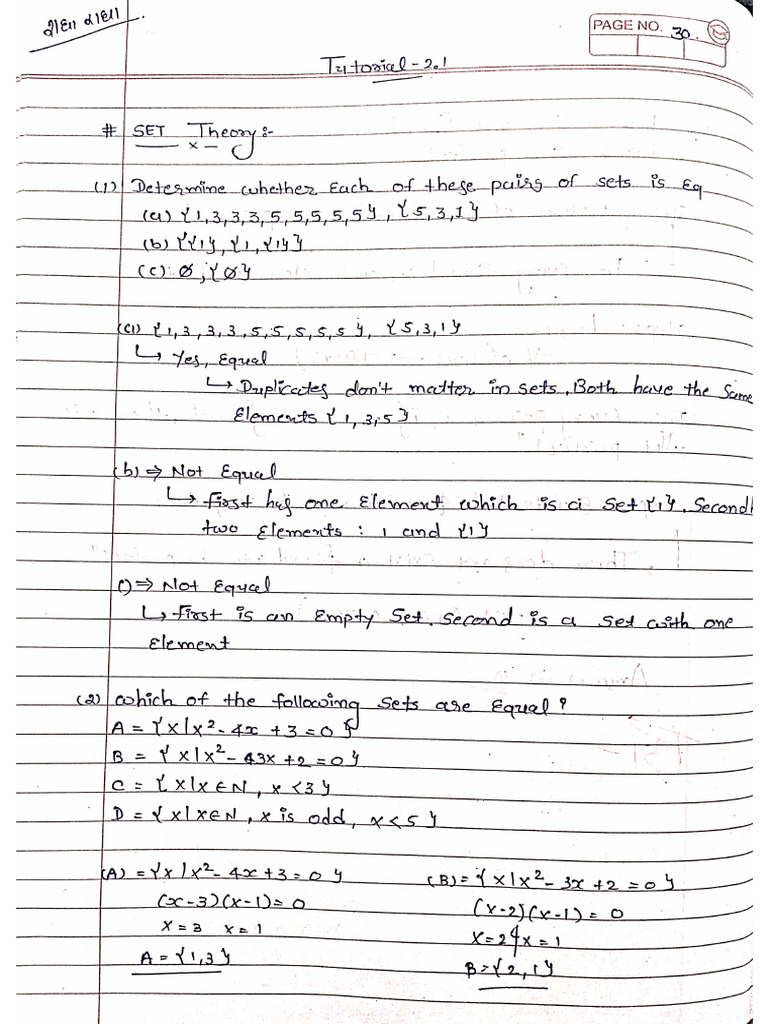 રાધા રાધા
PAGE NO. 30.
Tutorial-2.1
# SET Theory:-
(1) Determine whether Each of these pairs of sets is Eq
(a) {1,3,3,3,5,5,5,5,5}, {5,3,1}
(b) {{1}, {1, {1}}
(c) ∅, {∅}
(a) {1,3,3,3,5,5,5,5,5}, {5,3,1}
↳ Yes, Equal
↳ Duplicates don't matter in sets. Both have the same
Elements {1,3,5}
(b) ⇒ Not Equal
↳ first has one Element which is a set {1}. Second
two Elements : 1 and {1}
() ⇒ Not Equal
↳ first is an Empty Set. Second is a set with one
Element
(2) which of the following sets are Equal ?
A = {x|x²-4x+3=0}
B = {x|x²-43x+2=0}
C = {x|x∈N, x<3}
D = {x|x∈N, x is odd, x<5}
(A) = {x|x²-4x+3=0}
(x-3)(x-1)=0
x=3 x=1
A={1,3}
(B) = {x|x²-3x+2=0}
(x-2)(x-1)=0
x=2 & x=1
B={2,1}